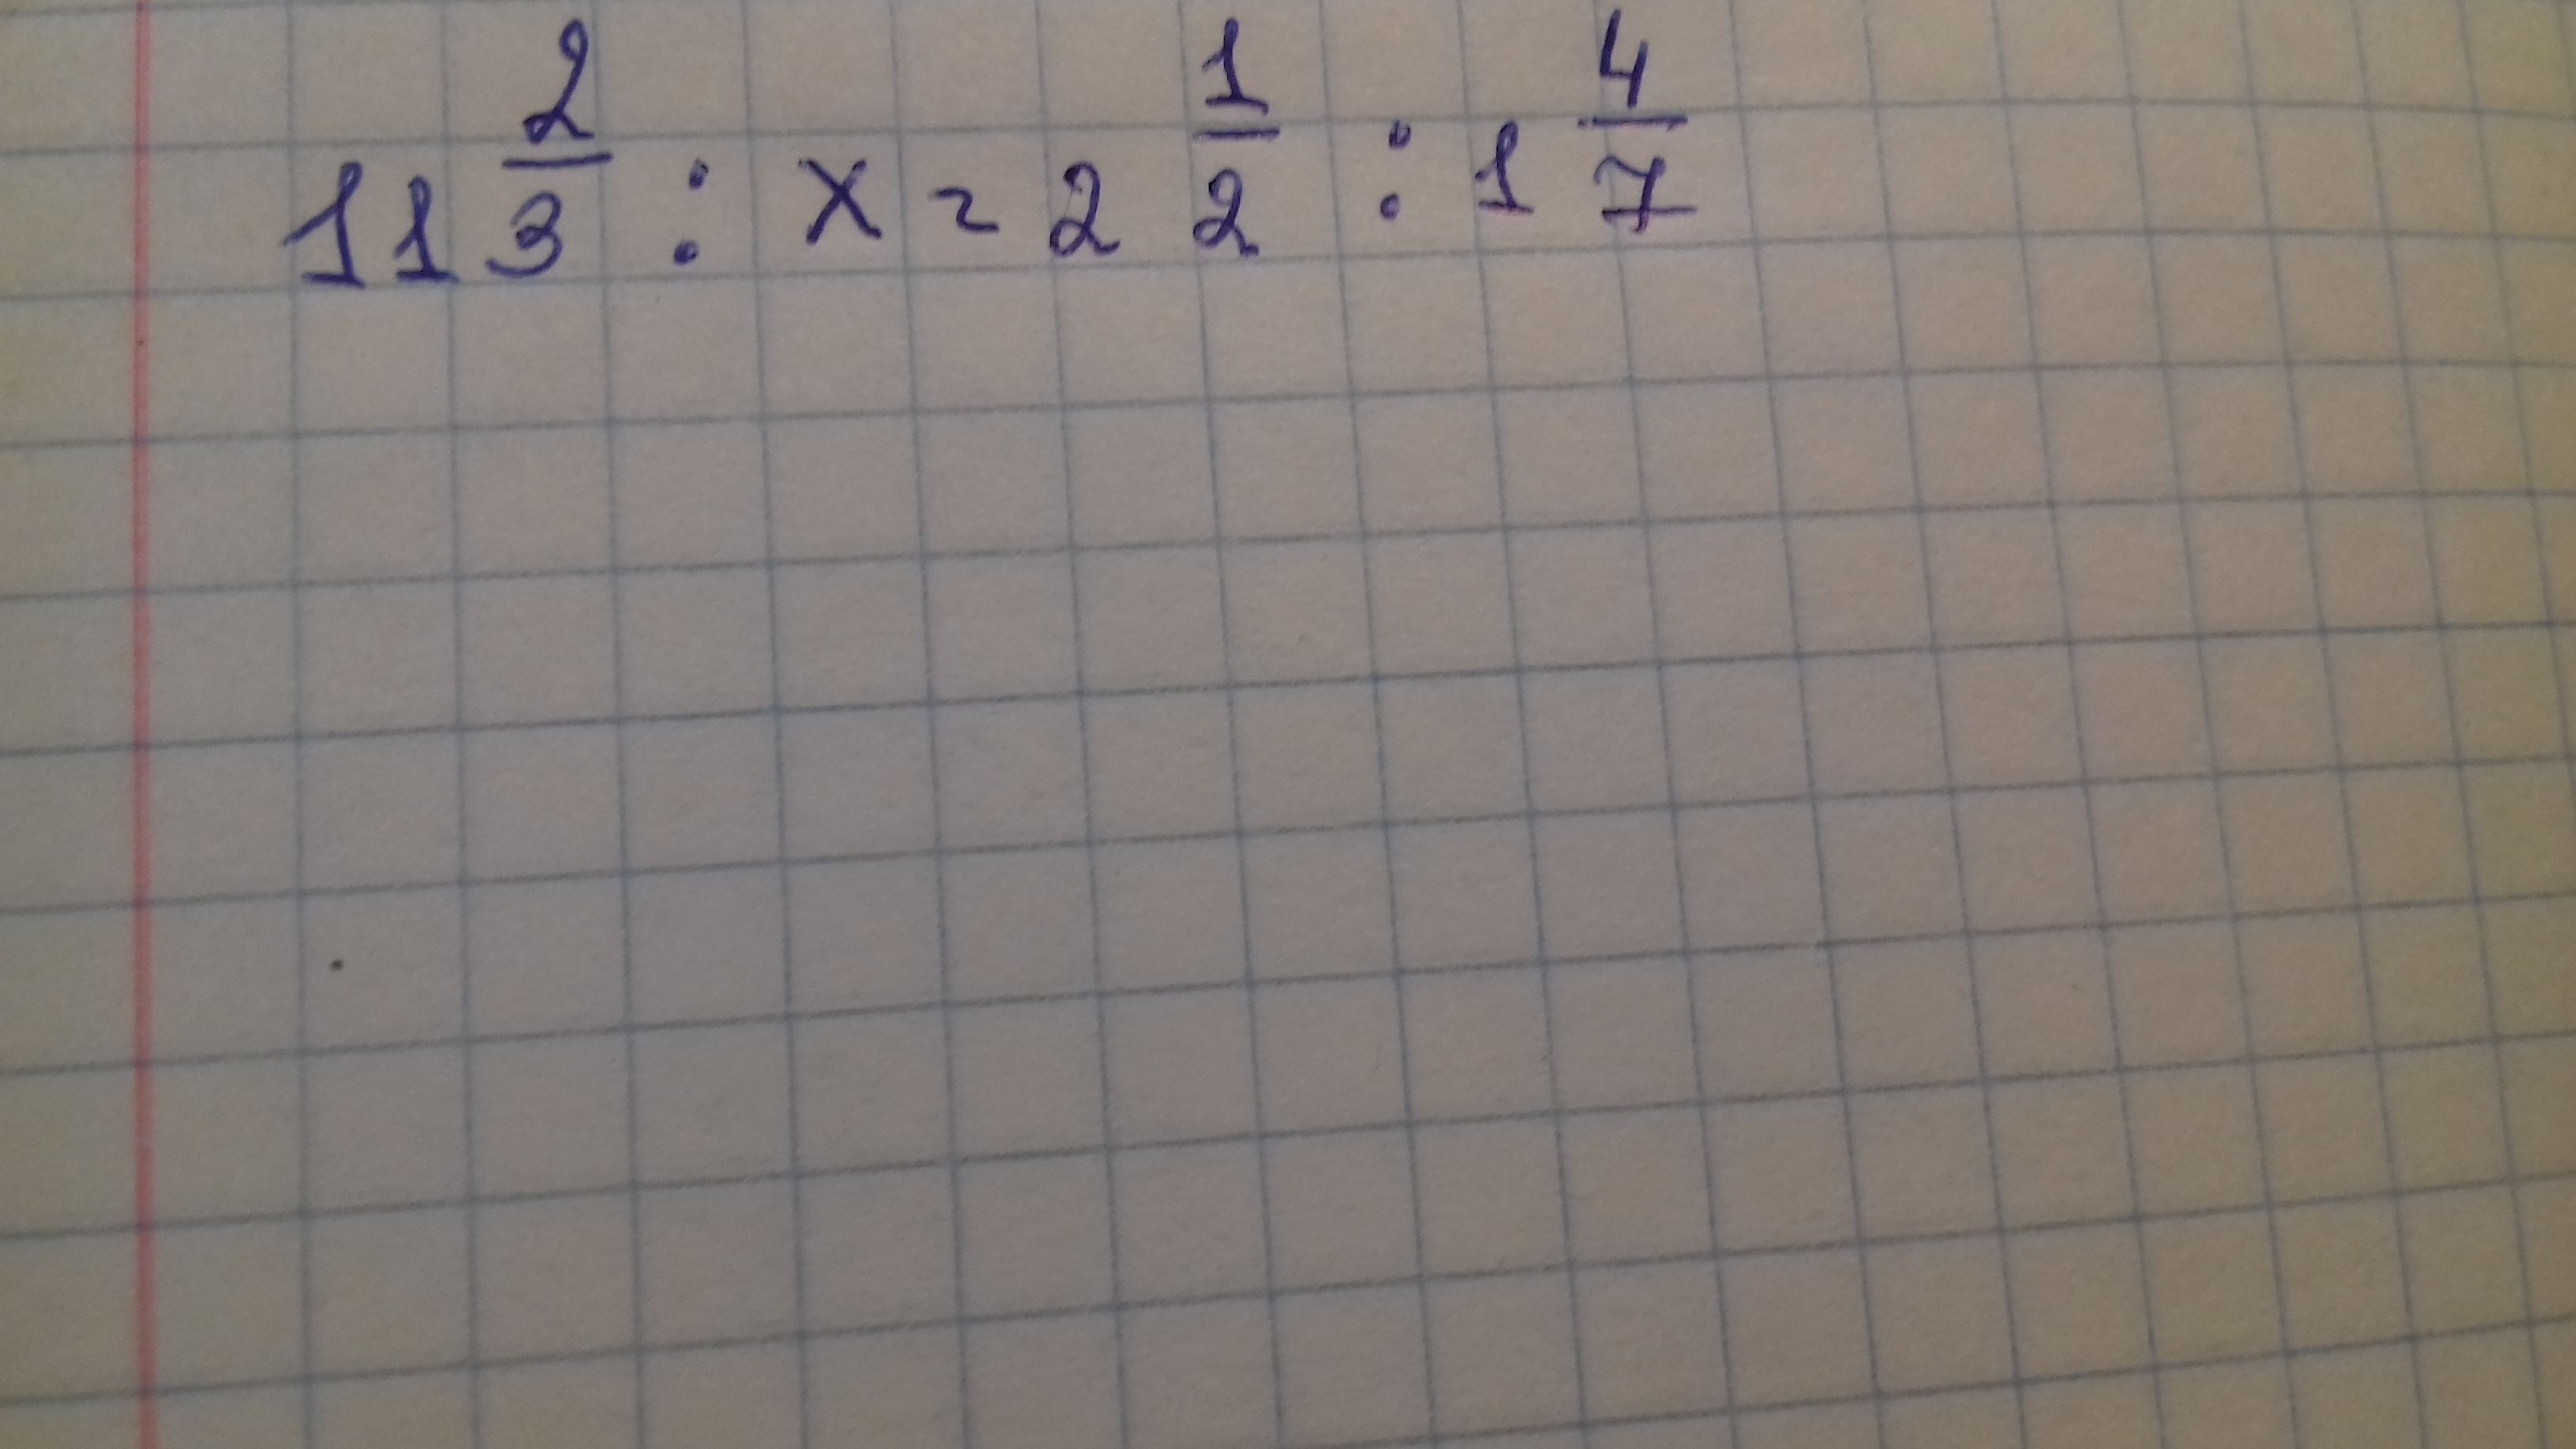 11 2/3 : x = 2 1/2 : 1 4/7